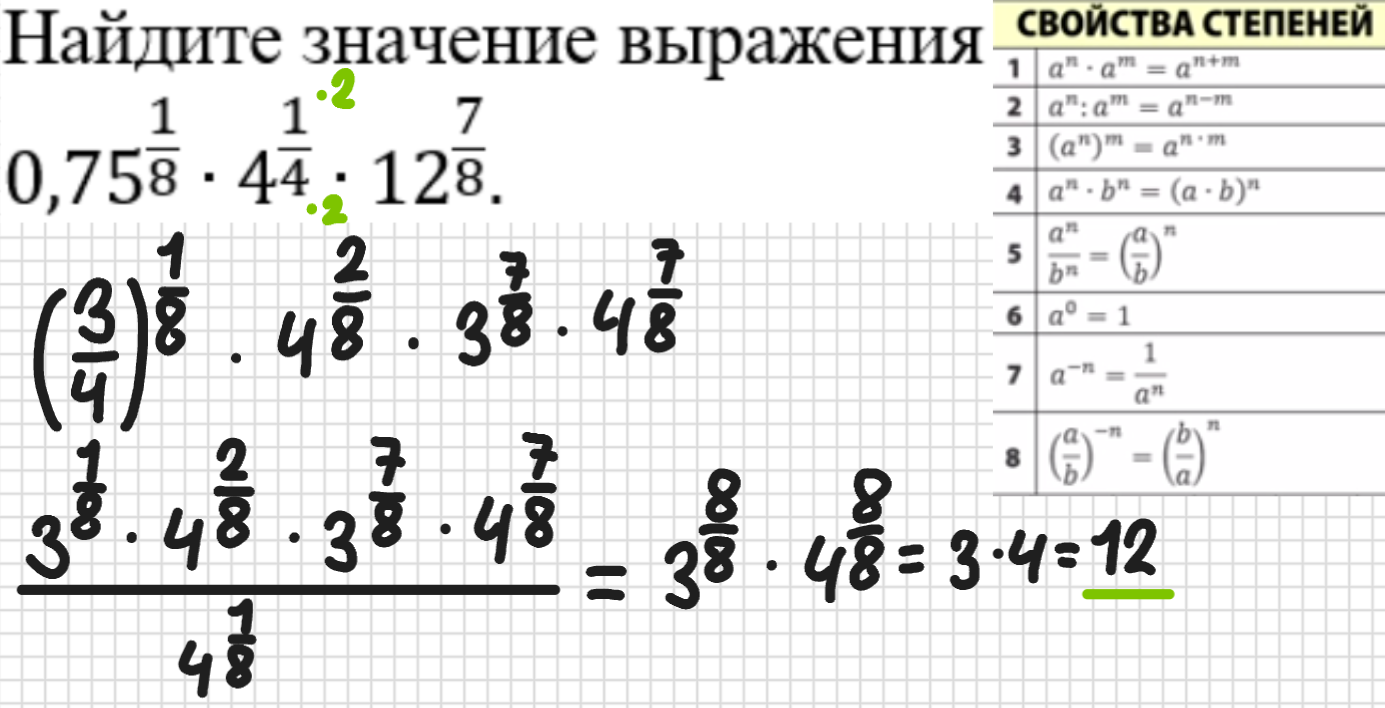 Найдите значение выражения
·2
0,75^(1/8) · 4^(1/4) · 12^(7/8).
·2
(3/4)^(1/8) · 4^(2/8) · 3^(7/8) · 4^(7/8)
(3^(1/8) · 4^(2/8) · 3^(7/8) · 4^(7/8)) / 4^(1/8) = 3^(8/8) · 4^(8/8) = 3 · 4 = 12
СВОЙСТВА СТЕПЕНЕЙ
1 aⁿ · aᵐ = aⁿ⁺ᵐ
2 aⁿ : aᵐ = aⁿ⁻ᵐ
3 (aⁿ)ᵐ = a^(n · m)
4 aⁿ · bⁿ = (a · b)ⁿ
5 aⁿ/bⁿ = (a/b)ⁿ
6 a⁰ = 1
7 a⁻ⁿ = 1/aⁿ
8 (a/b)⁻ⁿ = (b/a)ⁿ